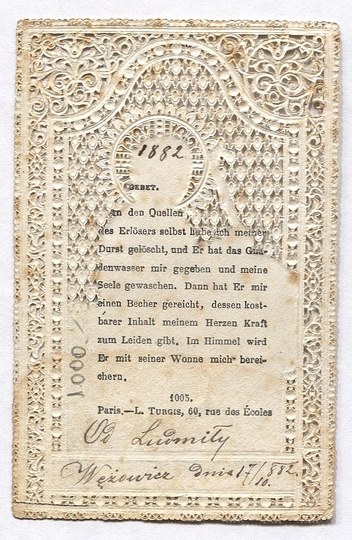 1882
GEBET.
an den Quellen
des Erlösers selbst habe ich meinen
Durst gelöscht, und Er hat das Gna-
denwasser mir gegeben und meine
Seele gewaschen. Dann hat Er mir
einen Becher gereicht, dessen kost-
barer Inhalt meinem Herzen Kraft
zum Leiden gibt. Im Himmel wird
Er mit seiner Wonne mich berei-
chern.
1000
1003.
Paris.—L. Turgis, 60, rue des Écoles
Od Ludmiły
Wężowicz dnia 17/10. 882